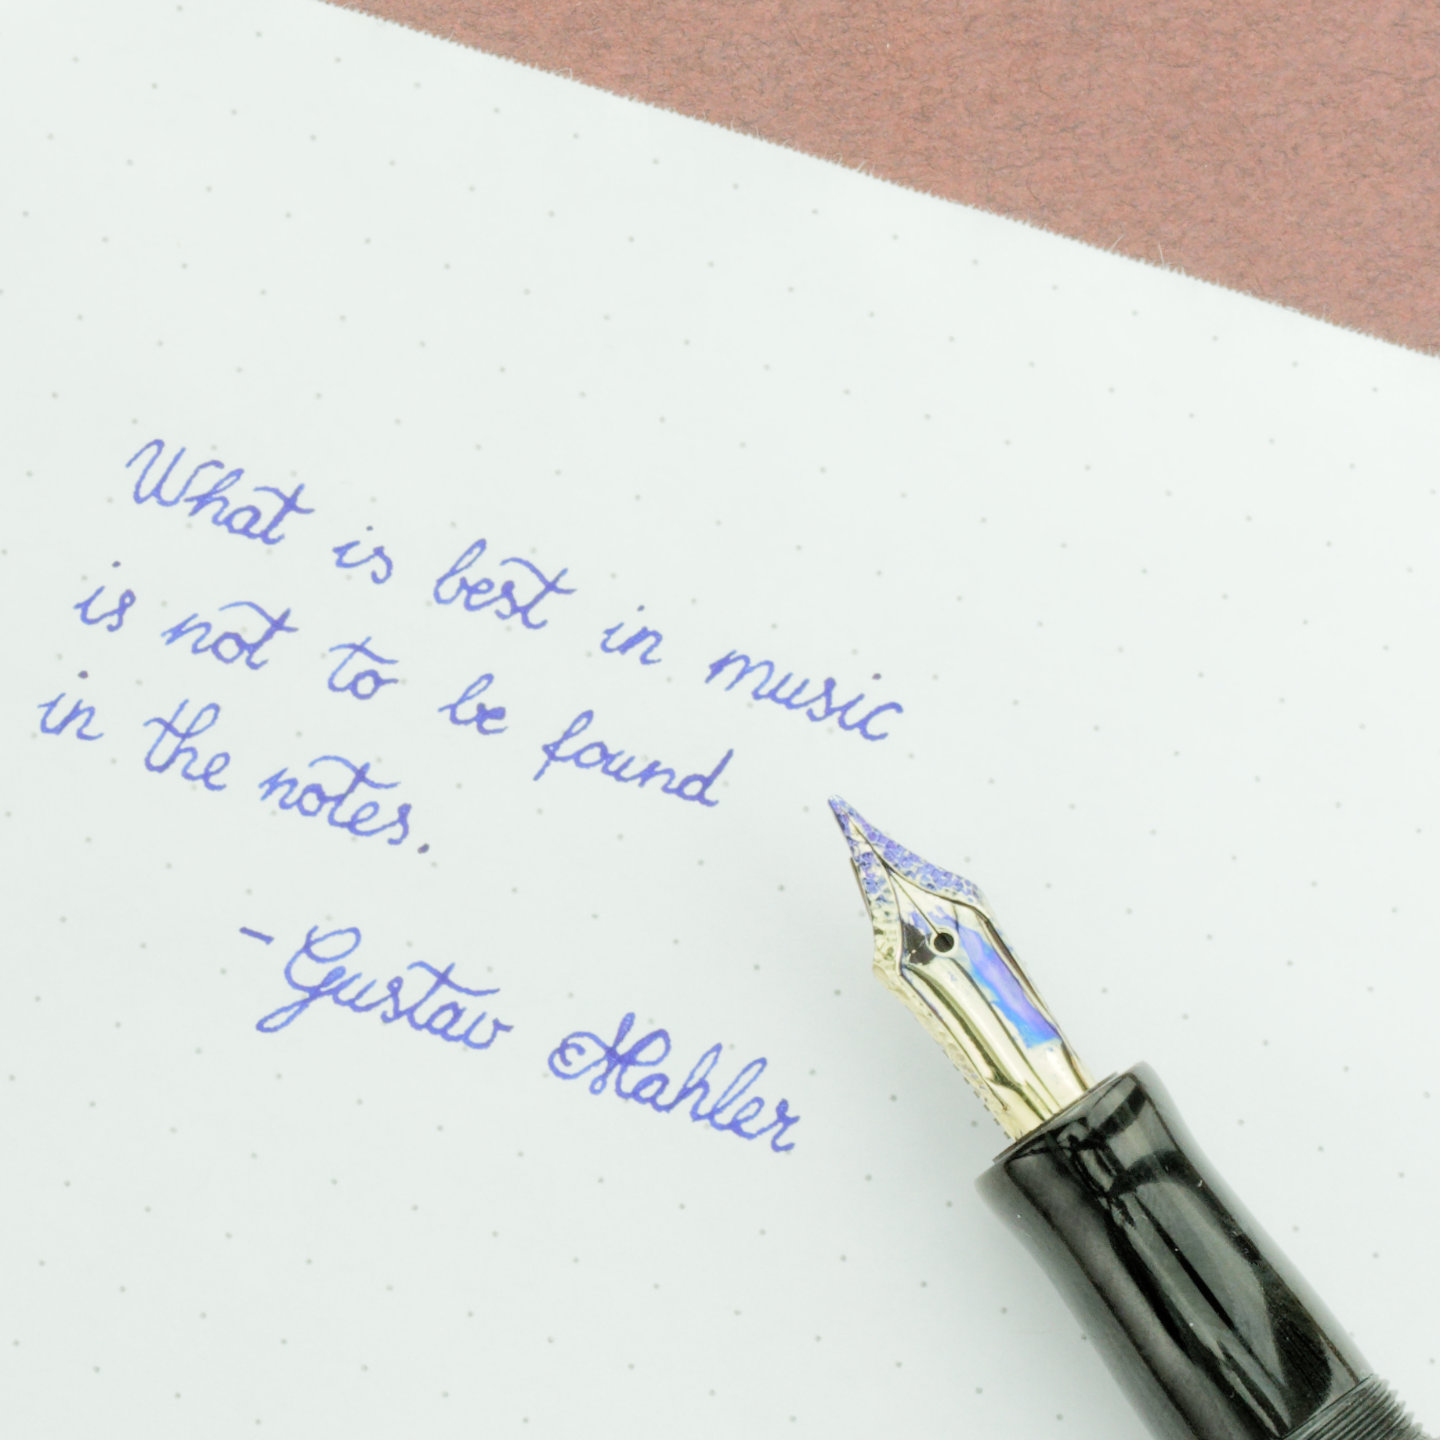 What is best in music
is not to be found
in the notes.
- Gustav Mahler